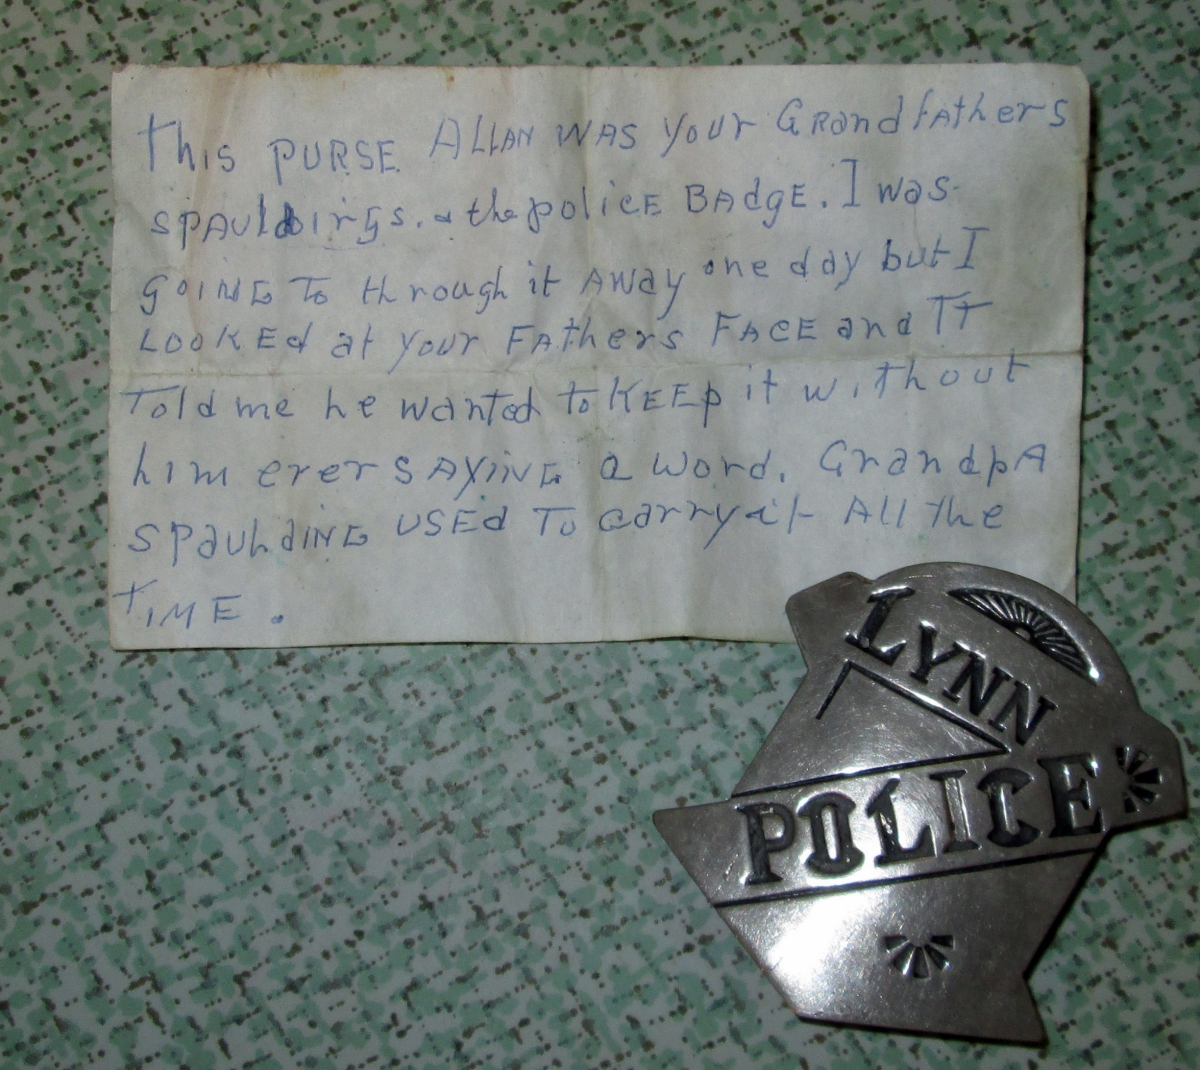 This PURSE ALLAN WAS your GRandfAthers
SPAUldings. & the police BAdgE. I was
goING To through it AWAy one day but I
LOOKEd at your FAthers FACE and IT
Told me he wanted to KEEp it without
him ever SAYING a word. GrandpA
SpauldING USEd To carry it All the
TIME.
LYNN
POLICE